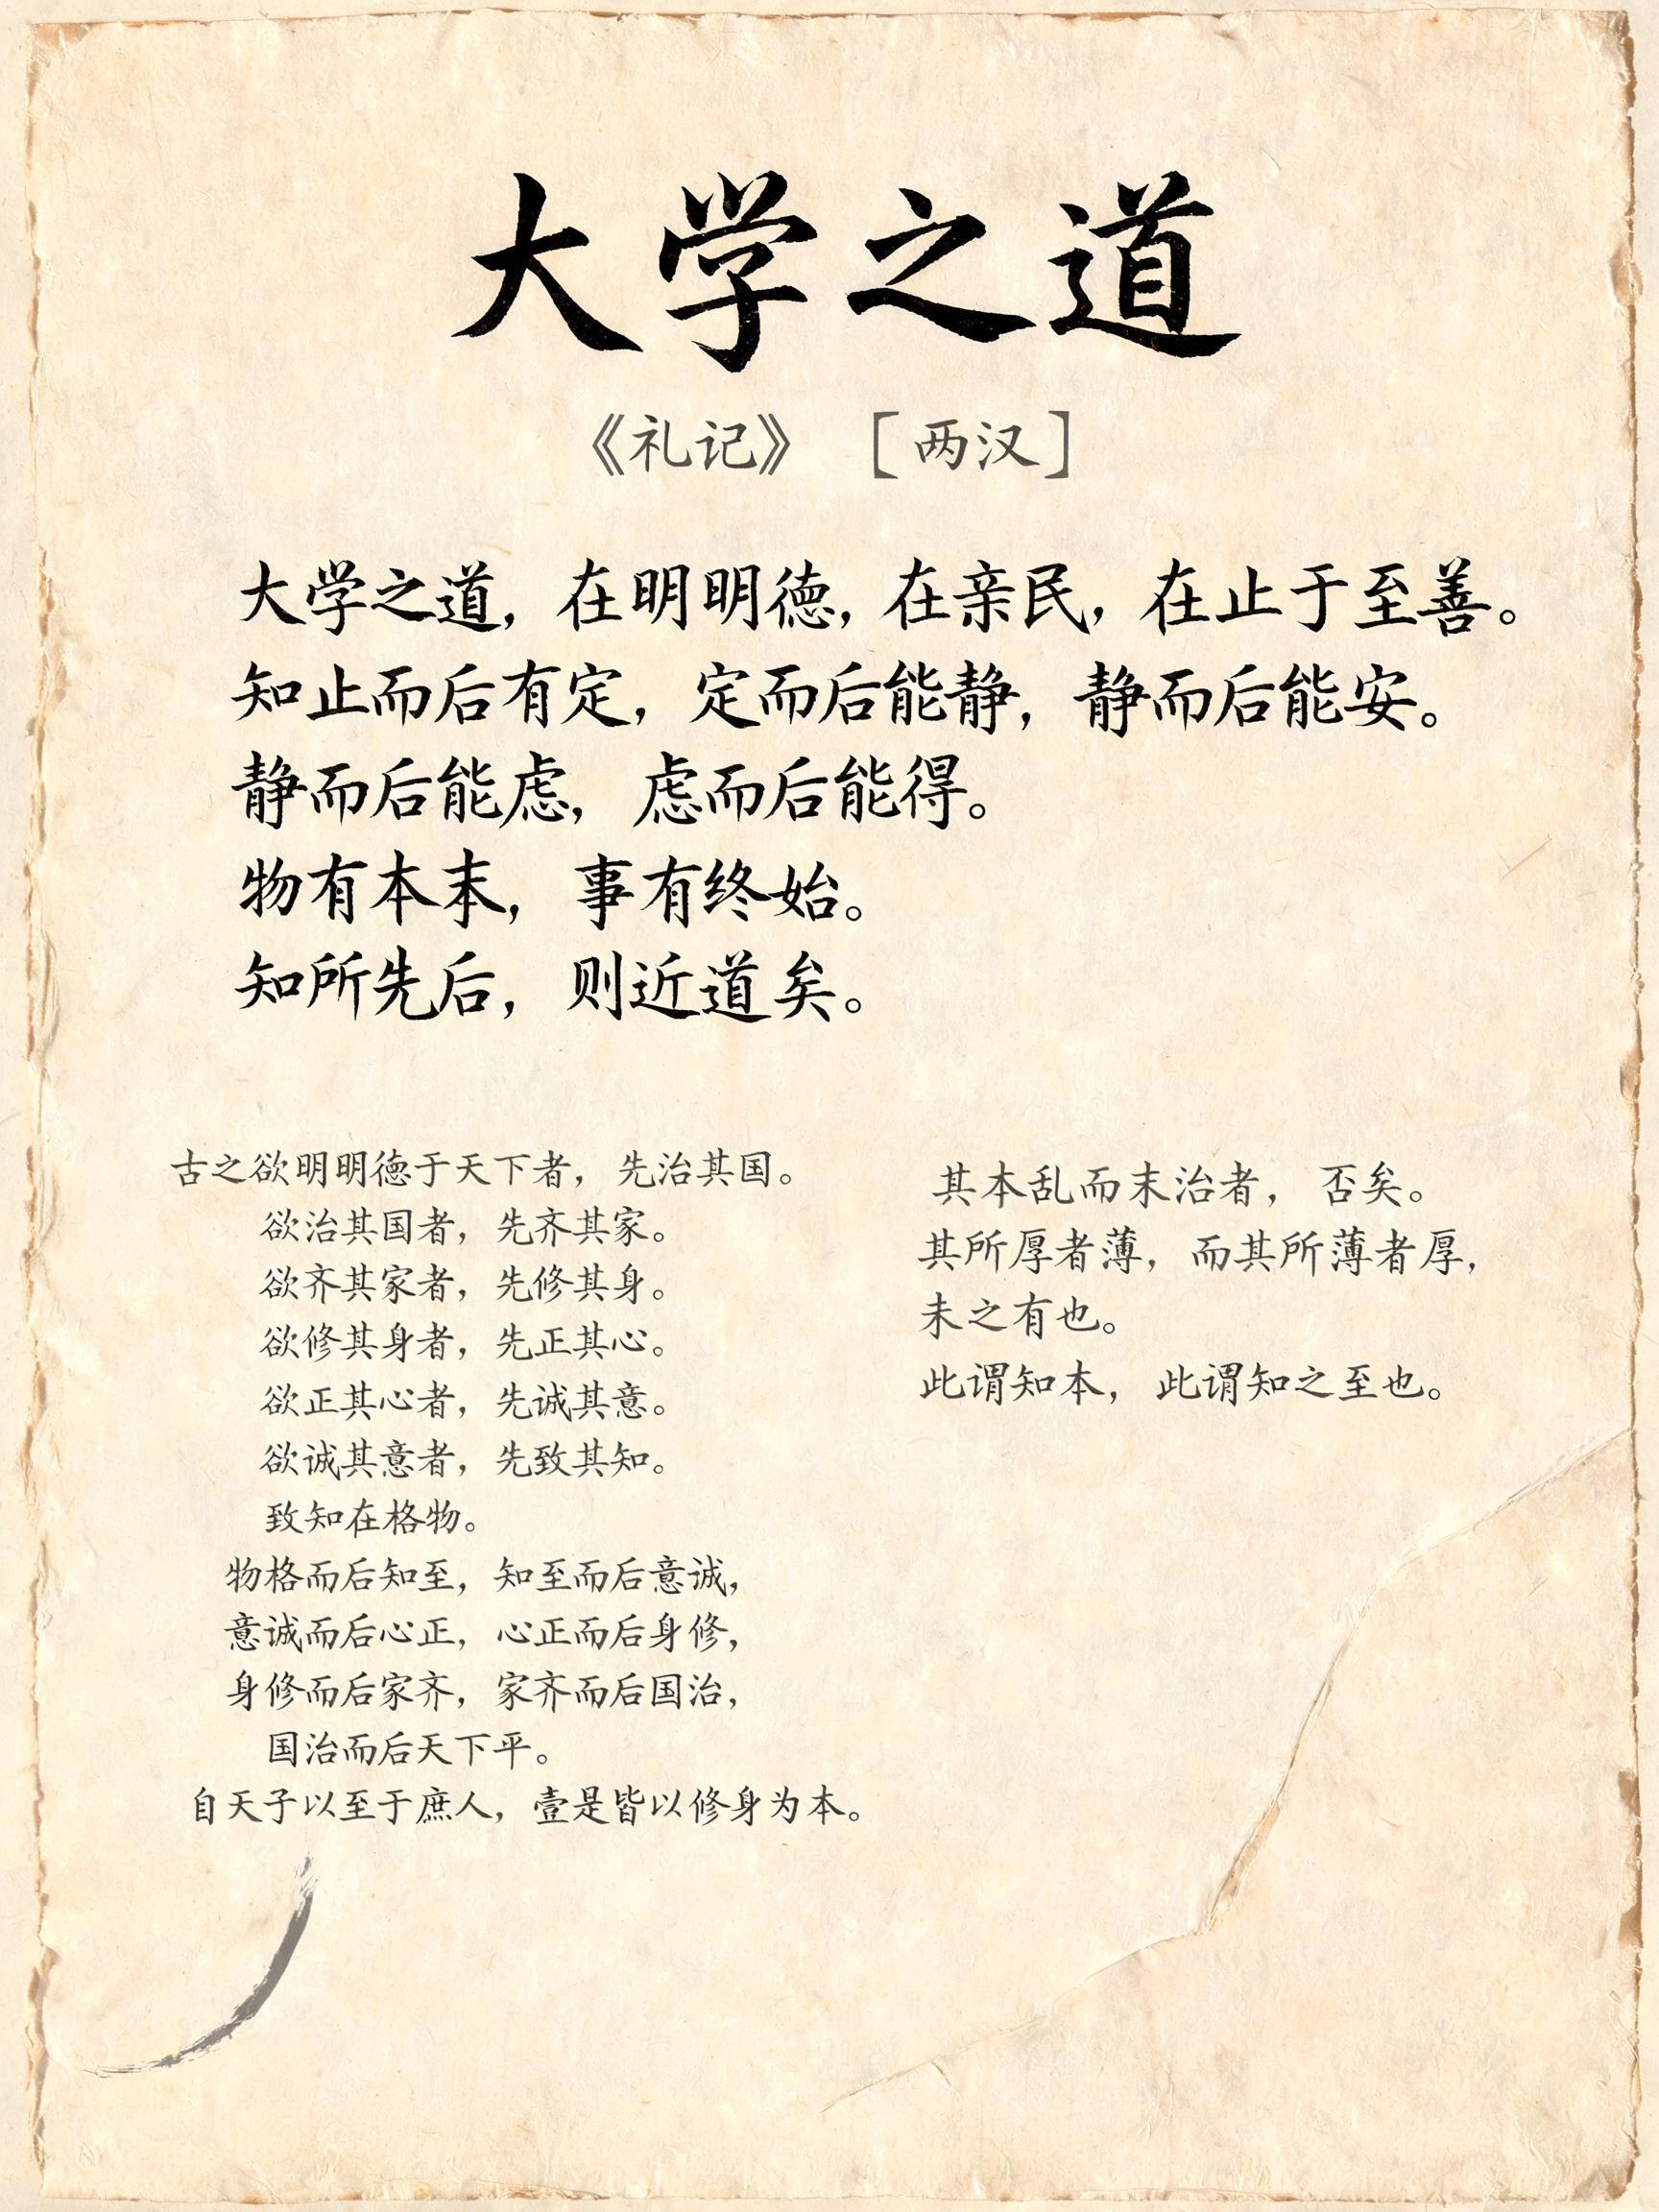 大学之道
《礼记》 [两汉]
大学之道，在明明德，在亲民，在止于至善。
知止而后有定，定而后能静，静而后能安。
静而后能虑，虑而后能得。
物有本末，事有终始。
知所先后，则近道矣。
古之欲明明德于天下者，先治其国。
欲治其国者，先齐其家。
欲齐其家者，先修其身。
欲修其身者，先正其心。
欲正其心者，先诚其意。
欲诚其意者，先致其知。
致知在格物。
物格而后知至，知至而后意诚，
意诚而后心正，心正而后身修，
身修而后家齐，家齐而后国治，
国治而后天下平。
自天子以至于庶人，壹是皆以修身为本。
其本乱而末治者，否矣。
其所厚者薄，而其所薄者厚，
未之有也。
此谓知本，此谓知之至也。